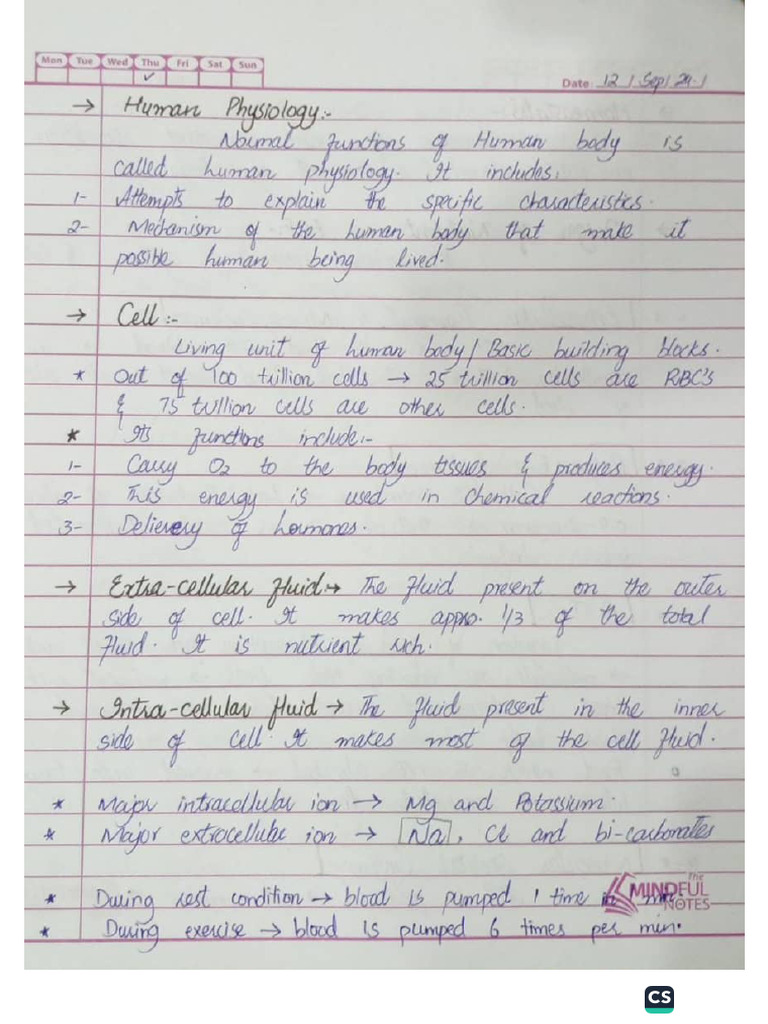 Mon Tue Wed Thu Fri Sat Sun
Date: 12 / Sep / 24
→ Human Physiology:-
Normal functions of Human body is
called human physiology. It includes.
1- Attempts to explain the specific characteristics.
2- Mechanism of the human body that make it
possible human being lived.
→ Cell :-
Living unit of human body / Basic building blocks.
* Out of 100 trillion cells → 25 trillion cells are RBC's
& 75 trillion cells are other cells.
* Its functions include:-
1- Carry O2 to the body tissues & produces energy.
2- This energy is used in chemical reactions.
3- Delievery of hormones.
→ Extra-cellular fluid → The fluid present on the outer
side of cell. It makes appro. 1/3 of the total
fluid. It is nutrient rich.
→ Intra-cellular fluid → The fluid present in the inner
side of cell. It makes most of the cell fluid.
* Major intracellular ion → Mg and Potassium.
* Major extrocellular ion → Na, Cl and bi-carbonates
* During rest condition → blood is pumped 1 time in
The MINDFUL NOTES
* During exercise → blood is pumped 6 times per min.
CS